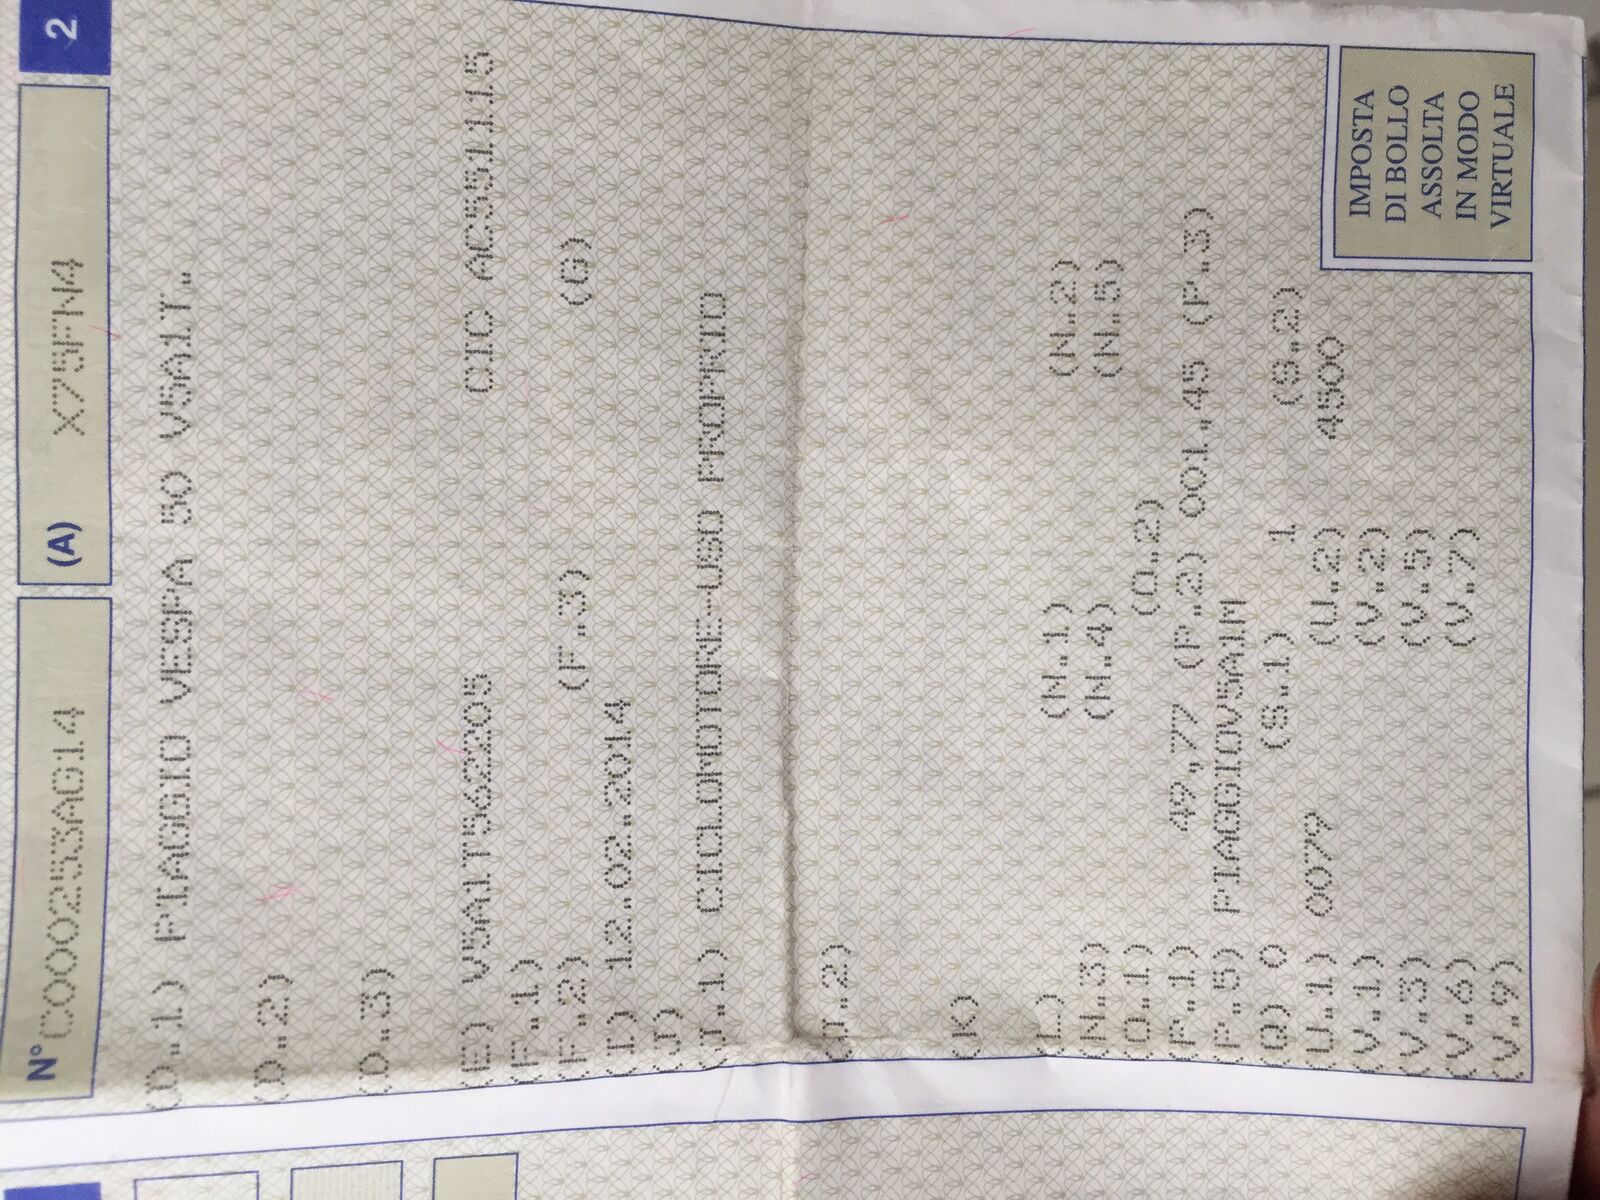 2
N° C000253AG14 (A) X75FN4
(D.1) PIAGGIO VESPA 50 V5A1T.
(D.2)
(D.3)
(E) V5A1T562205 CIC AC551115
(F.1)
(F.2) (F.3) (G)
(I) 12.02.2014
(J)
(J.1) CICLOMOTORE-USO PROPRIO
(J.2)
(K)
(L) (N.1) (N.2)
(N.3) (N.4) (N.5)
(O.1) (O.2)
(P.1) 49,77 (P.2) 001,45 (P.3)
(P.5) PIAGGIOV5A1M
(Q) 0 (S.1) 1 (S.2)
(U.1) 0079 (U.2) 4500
(V.1) (V.2)
(V.3) (V.5)
(V.6) (V.7)
(V.9)
IMPOSTA
DI BOLLO
ASSOLTA
IN MODO
VIRTUALE